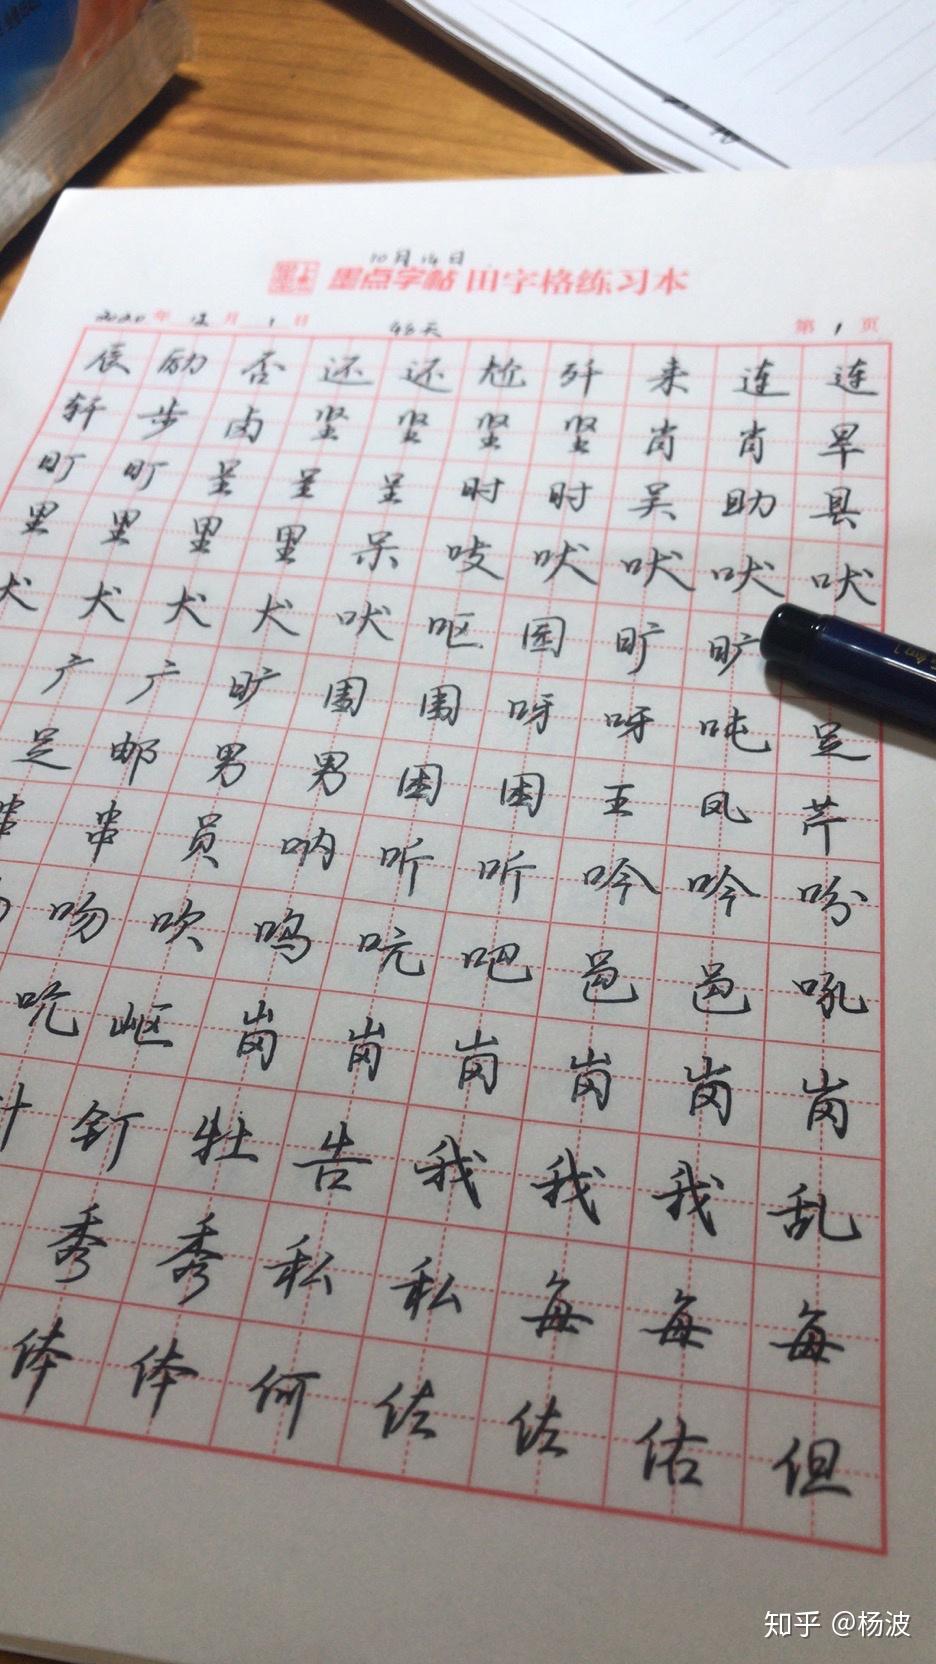 10月14日
墨点字帖 田字格练习本
2020年 12月 1日 48天 第 1 页
辰 励 否 还 还 尬 歼 来 连 连
轩 步 卤 坚 坚 坚 坚 肖 肖 旱
盯 盯 呈 呈 呈 时 时 吴 助 县
里 里 里 里 呆 吱 吠 吠 吠 吠
犬 犬 犬 犬 吠 呕 园 旷 旷
广 广 旷 围 围 呀 呀 吨 足
足 邮 男 男 困 困 王 凤 芹
串 串 员 呐 听 听 吟 吟 吩
吻 吹 鸣 吭 吧 邑 邑 吼
吭 岖 岗 岗 岗 岗 岗 岗
针 钉 牡 告 我 我 我 乱
秀 秀 私 私 每 每 每
体 体 何 佐 佐 佑 但
知乎 @杨波